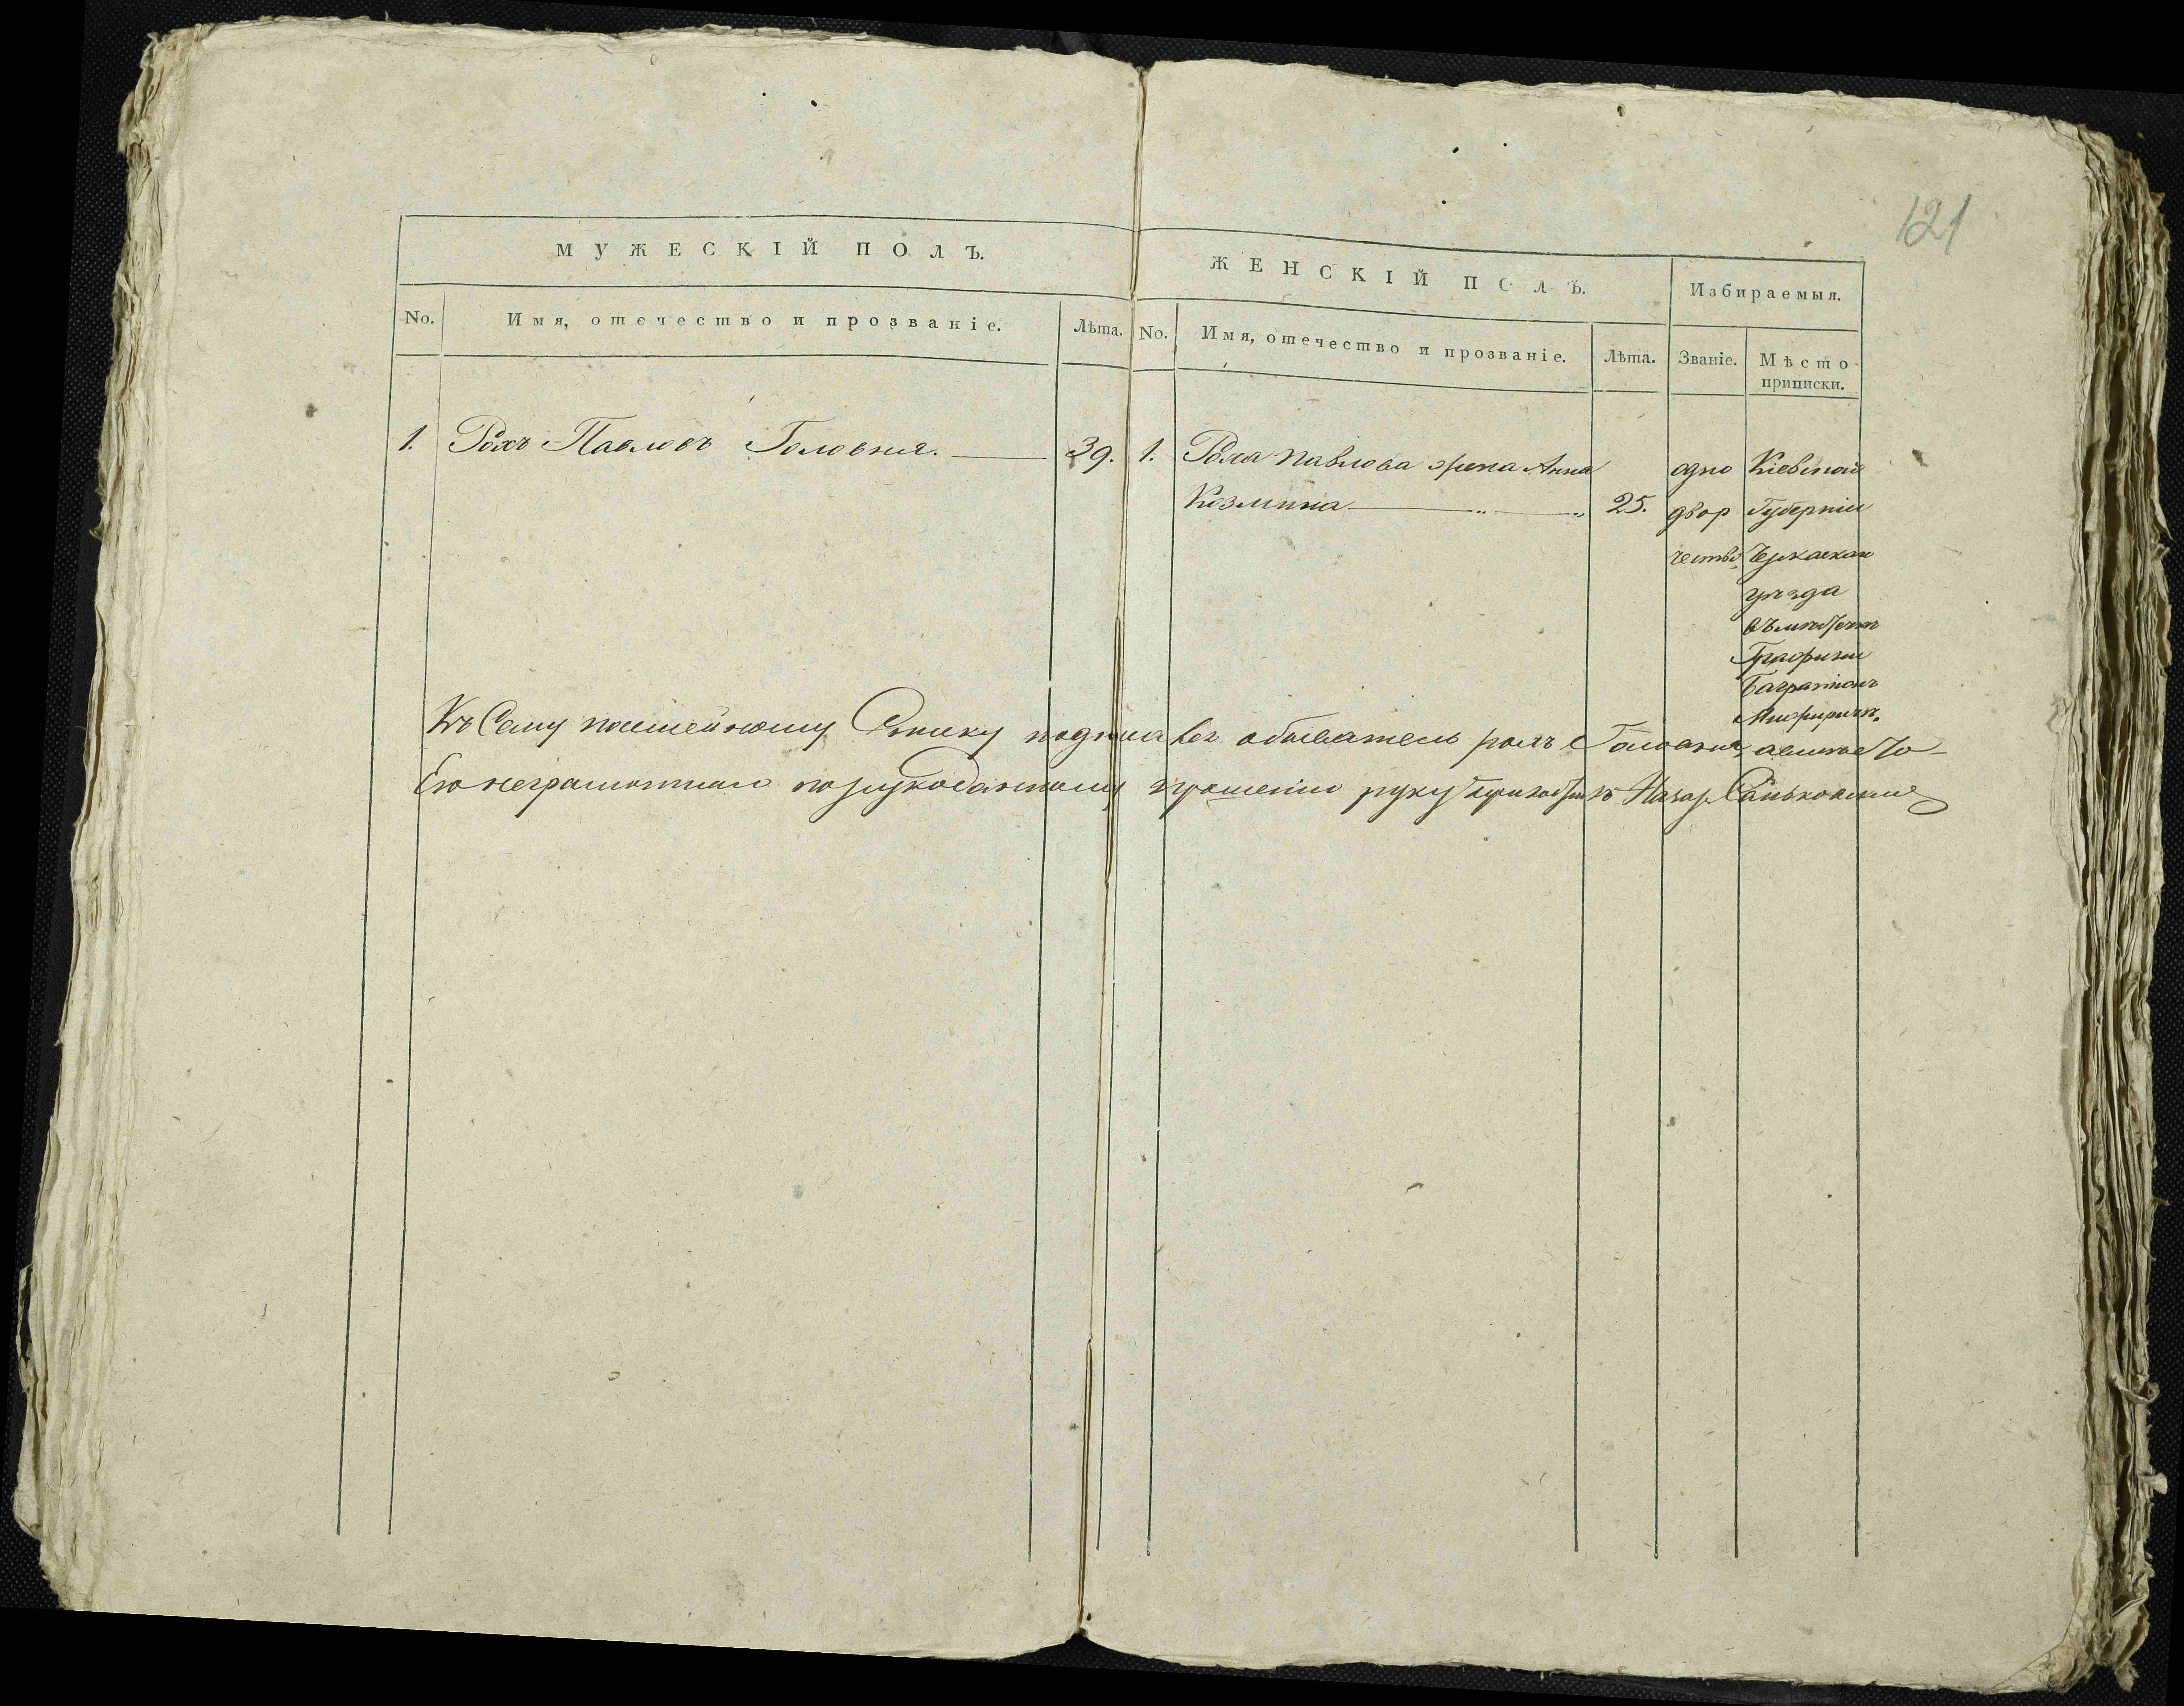 121
МУЖЕСКІЙ ПОЛЪ.
ЖЕНСКІЙ ПОЛЪ.
Избираемыя.
No.
Имя, отечество и прозваніе.
Лѣта.
No.
Имя, отечество и прозваніе.
Лѣта.
Званіе.
Мѣсто
приписки.
1. Рохъ Павловъ Головня. 39.
1. Роха павлова жена Анна
Козмина 25.
одно
двор
чество
Кіевской
Губерніи
Черкаскаго
уѣзда
въ местечкѣ
Графини
Багратіонъ
Къ Сему посемейному Списку подписался обыватель рохъ Головня, а вместо
Его неграмотнаго по рукоданному прошенію руку приложилъ Назар